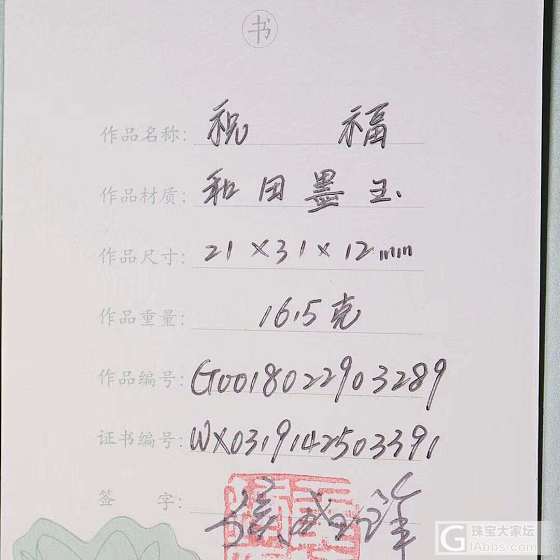 书
作品名称: 祝 福
作品材质: 和田墨玉
作品尺寸: 21×31×12mm
作品重量: 16.5克
作品编号: G0018022903289
证书编号: WX0319142503391
签 字:
珠宝大家坛
GIABBS.COM